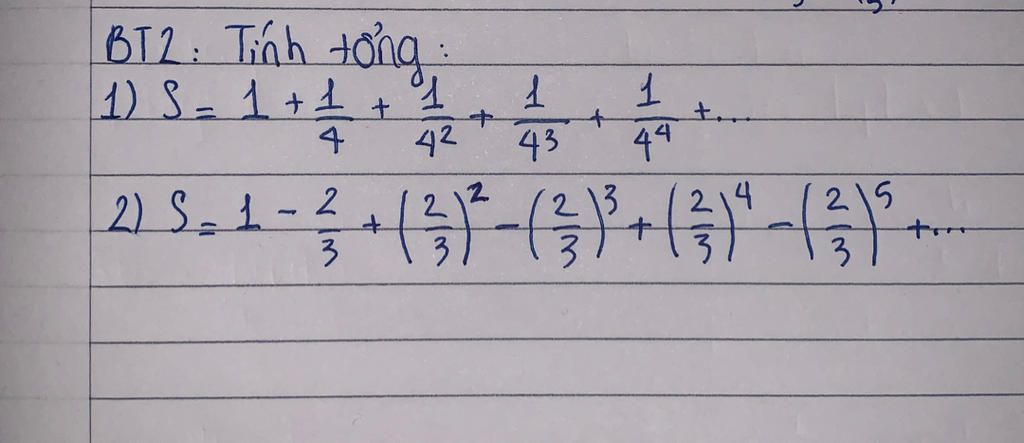 BT2: Tính tổng:
1) S = 1 + 1/4 + 1/4² + 1/4³ + 1/4⁴ + ...
2) S = 1 - 2/3 + (2/3)² - (2/3)³ + (2/3)⁴ - (2/3)⁵ + ...